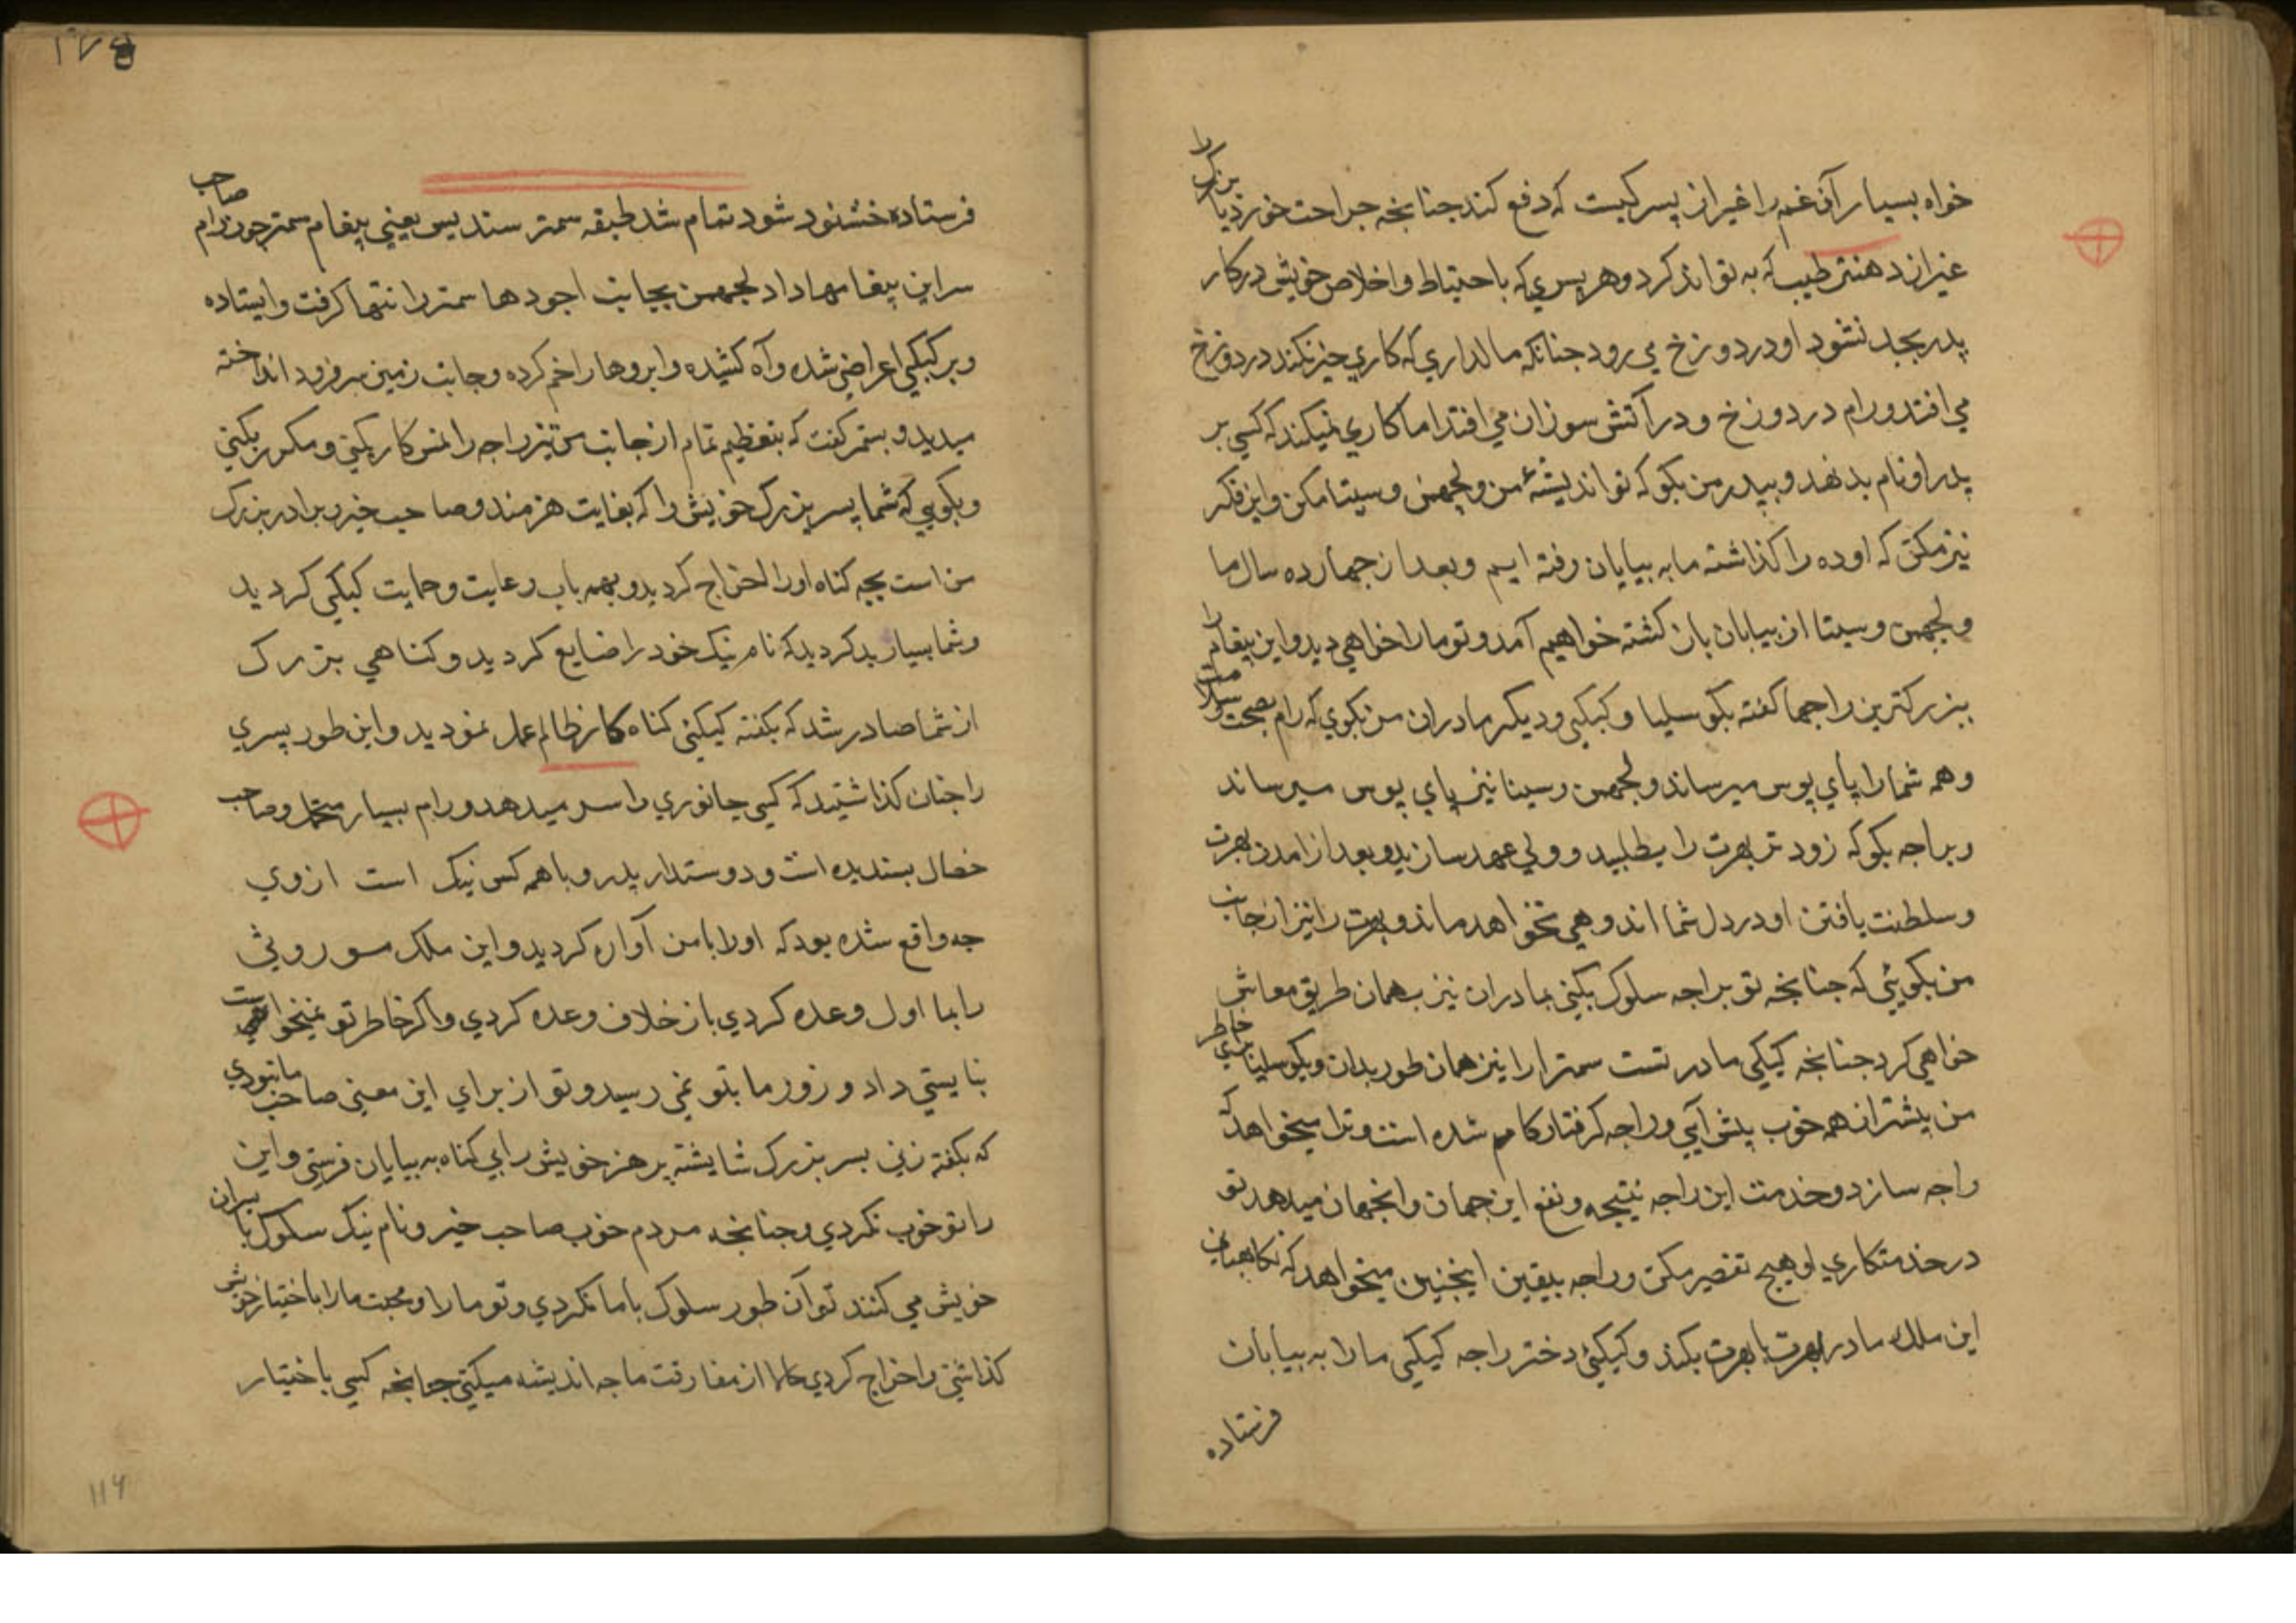 خواه بسیار آن غم را غیر از پسر کیست که دفع کند جنانچه جراحت خورد یا بزرک را
غیر از دهنتر طبیب که به تواند کرد و هر پسری که با احتیاط و اخلاص خویش در کار
پدر بجد نشود او در دوزخ می رود جنانکه مالداری که کاری خیر نکند در دوزخ
می افتد و رام در دوزخ و در آتش سوزان می افتد اما کاری نمیکند که کسی بر
پدر او نام بد نهد و بپدر من بکو که تو اندیشهٔ من و لجهمن و سیتا مکن و این فکر
نیز مکن که اوده را کذاشته ما به بیابان رفته ایم و بعد از جهارده سال ما
و لجهمن و سیتا از بیابان باز کشته خواهیم آمد و تو ما را خواهی دید و این پیغام را
ببزرکترین راجها کفته بکوسلیا و کیکیی و دیکر مادران من بکوی که رام بصحت و سلامت
و همه شما را پای پوس میرساند و لجهمن و سیتا نیز پای پوس میرساند
و براجه بکو که زود تر بهرت را بطلبید و ولی عهد سازید و بعد از امدن بهرت
و سلطنت یافتن او در دل شما اندوهی نخواهد ماند و بهرت را نیز از جانب
من بکویئی که جنانچه تو براجه سلوک بکنی بمادران نیز بهمان طریق معاش
خواهی کرد جنانچه کیکی مادر تست سمترا را نیز همان طور بدان و بکوسلیا برای خاطر
من پیشتر از همه خوب پیش آیی و راجه کرفتار کام شده است و ترا میخواهد که
راجه سازد و خدمت این راجه نتیجه و نفع این جهان و انجهان میدهد تو
در خدمتکاری او هیچ تقصیر مکن و راجه بیقین اینجنین میخواهد که نکاهبانی
این ملک مادر بهرت با بهرت بکند و کیکئی دختر راجه کیکی ما را به بیابان
فرستاده
۱۷۵
فرستاده خشنود شود تمام شد طبقه سمتر سندیس یعنی پیغام سمتر چون رام صاحب
سر این پیغامها داد لجهمن بجانب اجودها سمتر را تنها کرفت و ایستاده
و بر کیکی اعراضی شده و آه کشیده و ابروها را خم کرده و جانب زمین سر فرود انداخته
میدید و بسمتر کفت که بتعظیم تمام از جانب من نیز راجه را نمسکار بکنی و مکرر بکنی
و بکویی که شما پسر بزرک خویش را که بغایت هنرمند و صاحب خیر و برادر بزرک
من است بچه کناه او را اخراج کردید و بهمه باب رعایت و حمایت کیکی کردید
و شما بسیار بد کردید که نام نیک خود را ضایع کردید و کناهی بزرک
از شما صادر شد که بکفته کیکئی کناه کار ظالم عمل نمودید و این طور پسری
را جنان کذاشتید که کسی جانوری را سر میدهد و رام بسیار متحمل و صاحب
خصال بسندیده است و دوستدار پدر و با همه کس نیک است از وی
جه واقع شده بود که اول با من آواره کردید و این ملک موروثی
را بما اول وعده کردی باز خلاف وعده کردی و اکر خاطر تو نمیخواست
نبایستی داد و زور ما بتو نمی رسید و تو از برای این معنی صاحب ما نبودی
که بکفته زنی بسر بزرک شایسته پر هنر خویش را بی کناه به بیابان فرستی و این
را تو خوب نکردی و جنانچه مردم خوب صاحب خیر و نام نیک سکوک با پسران
خویش می کنند تو آن طور سلوک با ما نکردی و تو ما را و محبت ما را باختیار خویش
کذاشتی و اخراج کردی حالا از مفارقت ما جه اندیشه میکنی جنانچه کسی باختیار
۱۱۶